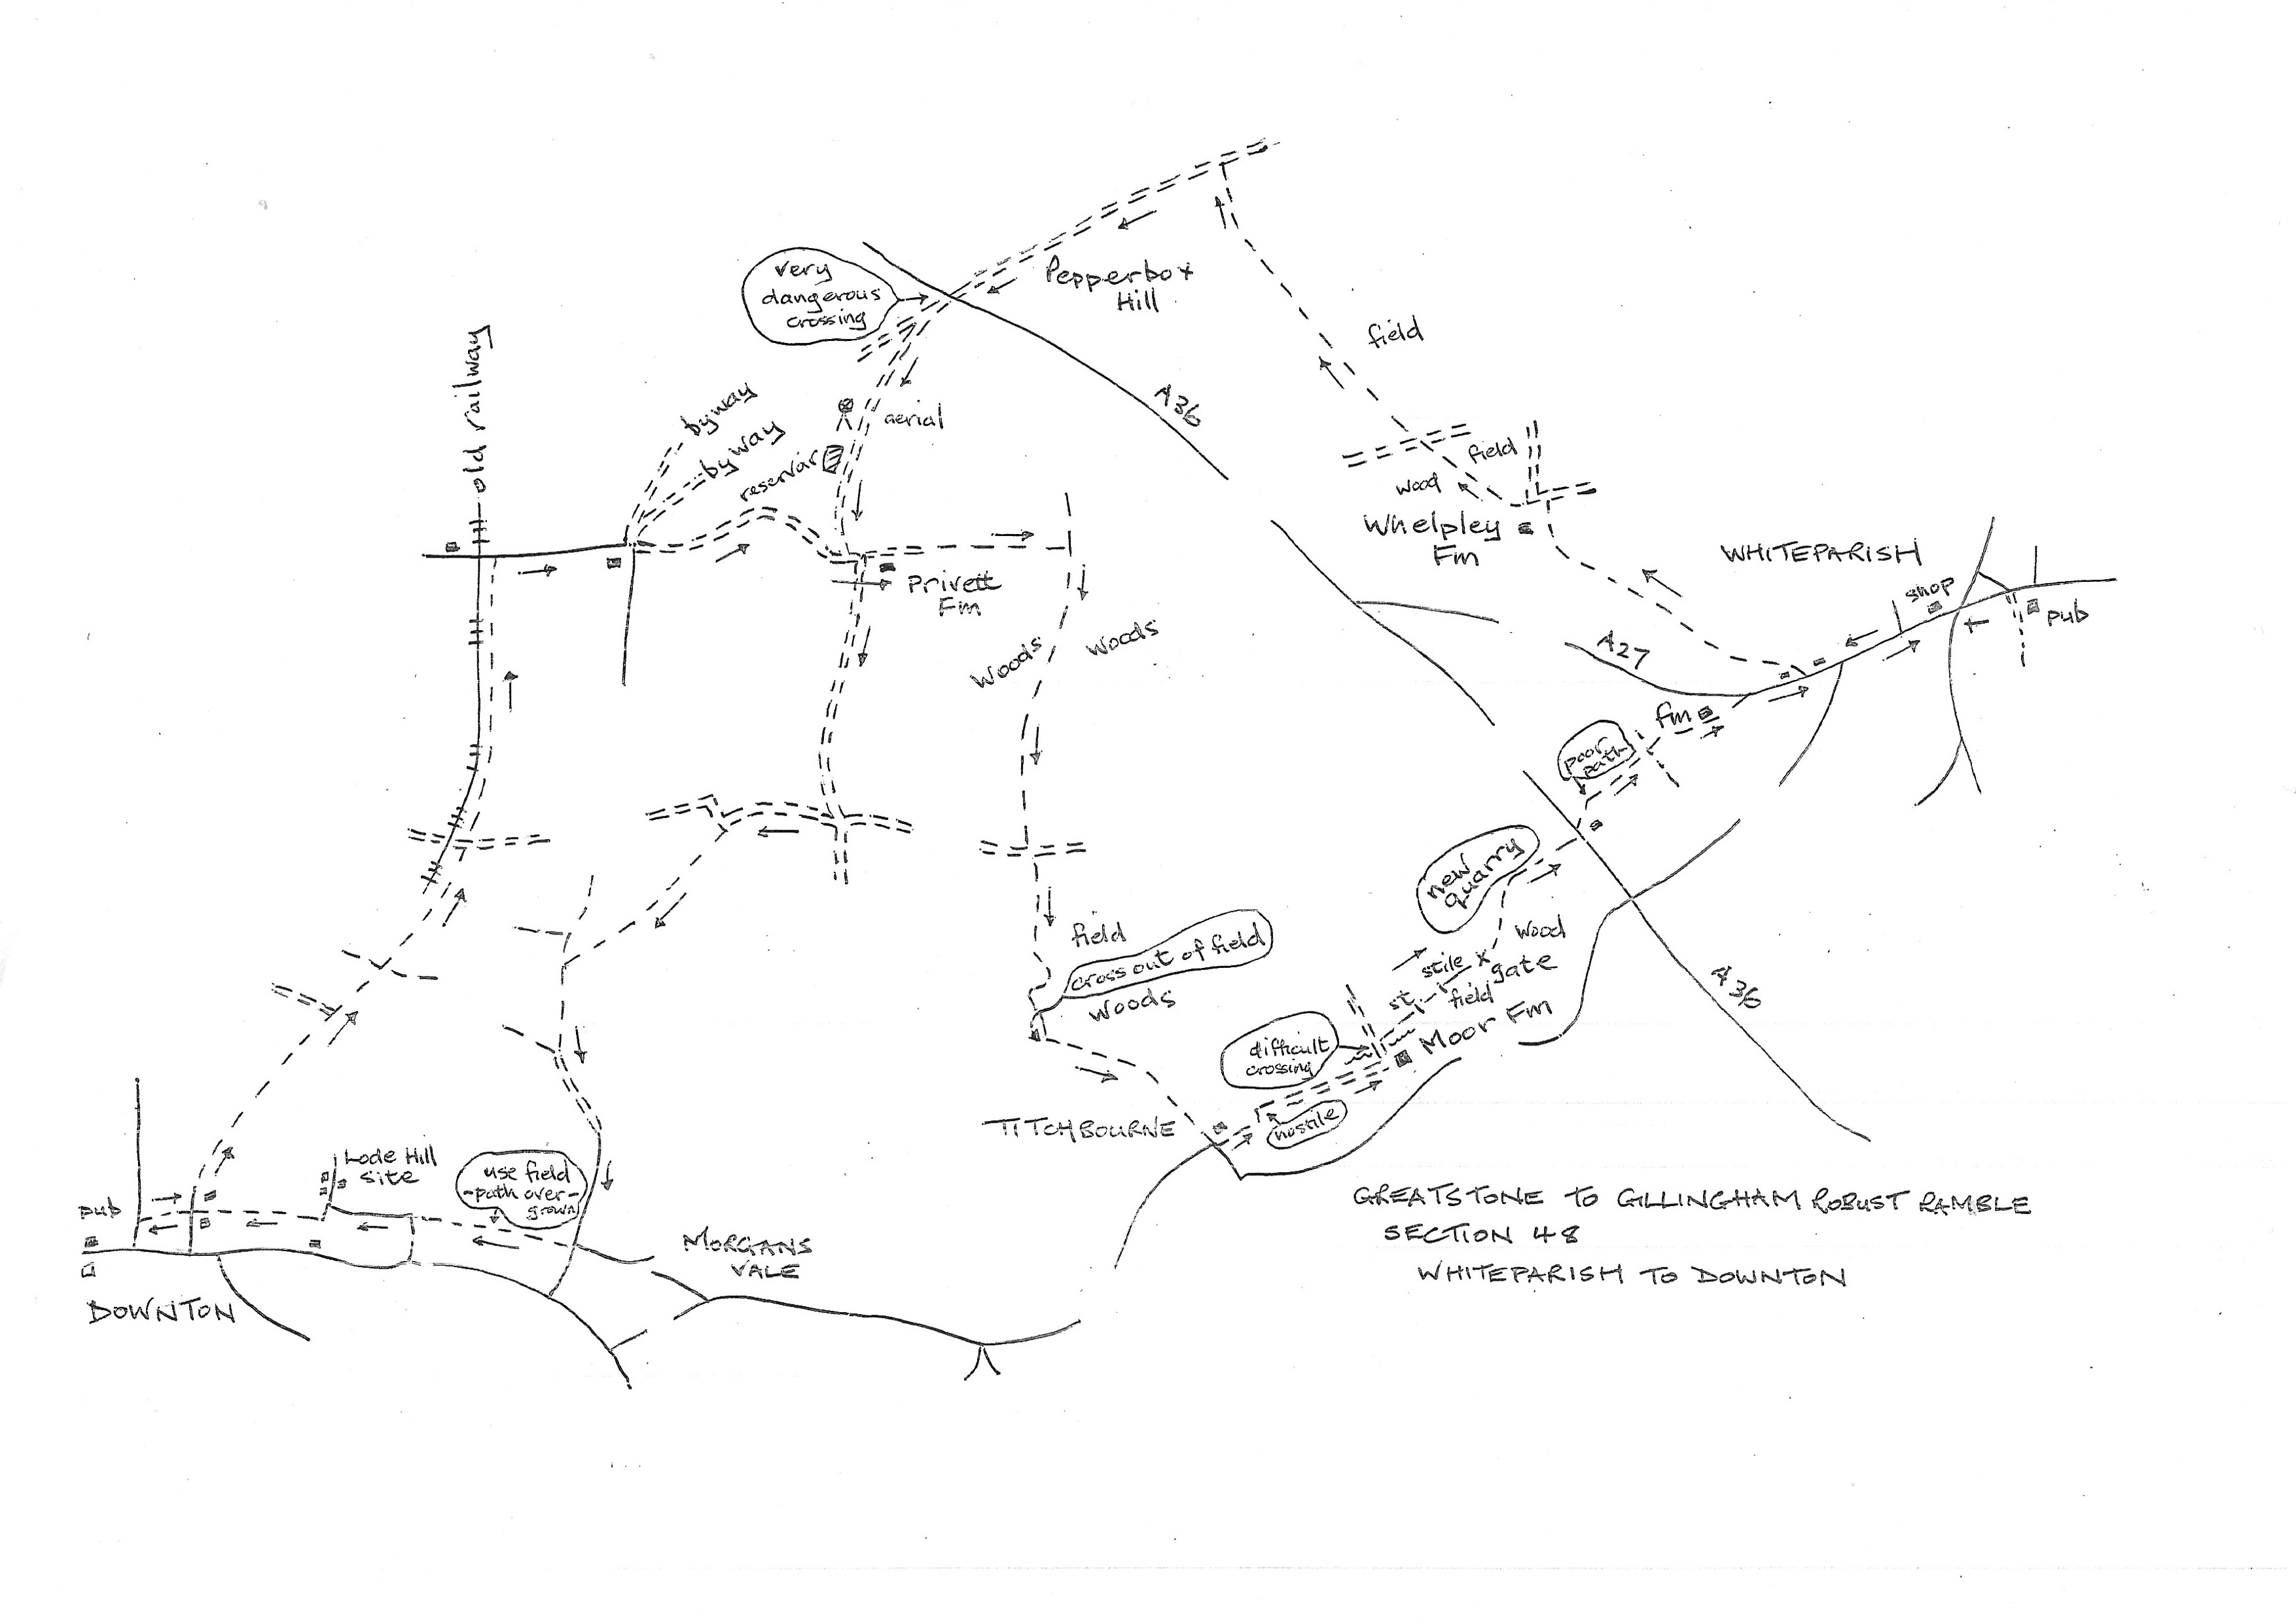 very
dangerous
crossing
Pepperbox
Hill
field
old railway
byway
byway
aerial
reservoir
A36
field
wood
Whelpley
Fm
WHITEPARISH
shop
pub
Privett
Fm
Woods
Woods
A27
Fm
poor
path
new
quarry
field
cross out of field
Woods
Wood
stile
gate
st
field
Moor Fm
A36
difficult
crossing
TITCHBOURNE
nostile
Lode Hill
site
use field
-path over-
grown
pub
MORGANS
VALE
DOWNTON
GREATSTONE TO GILLINGHAM ROBUST RAMBLE
SECTION 48
WHITEPARISH TO DOWNTON